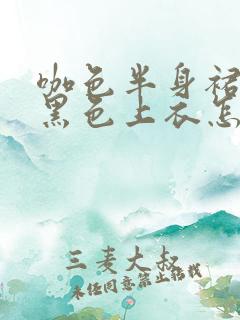 咖色半身裙
黑色上衣怎
三麦大叔
未经同意禁止搬找